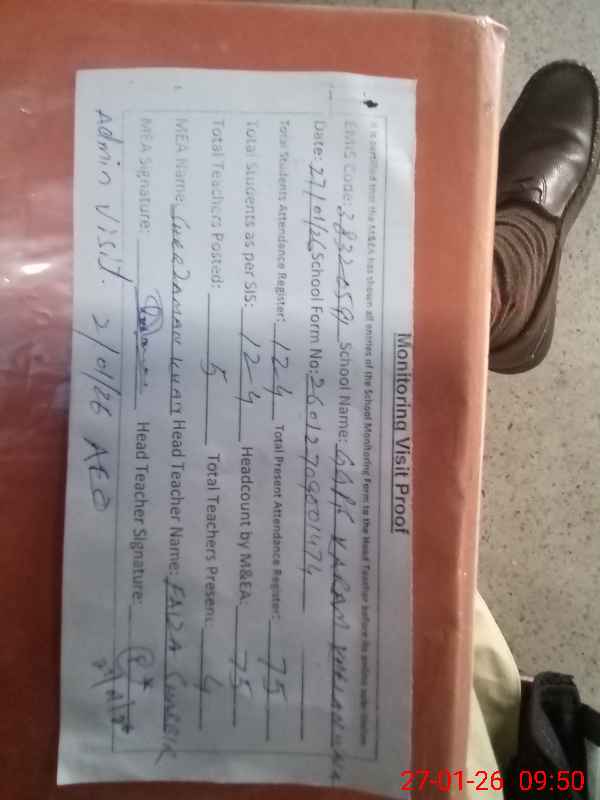 Monitoring Visit Proof
It is certified that the M&EA has shown all entries of the School Monitoring Form to the Head Teacher before its online submission
EMIS Code: 38320591 School Name: GGPS KARAM
Date: 27/01/26 School Form No: 26012709001474
Total Students Attendance Register: 124 Total Present Attendance Register: 75
Total Students as per SIS: 124 Headcount by M&EA: 75
Total Teachers Posted: 5 Total Teachers Present: 4
MEA Name: KHAN Head Teacher Name: FAIZA
MEA Signature: Head Teacher Signature:
Admin Visit. 2/01/26 AEO
27-01-26 09:50